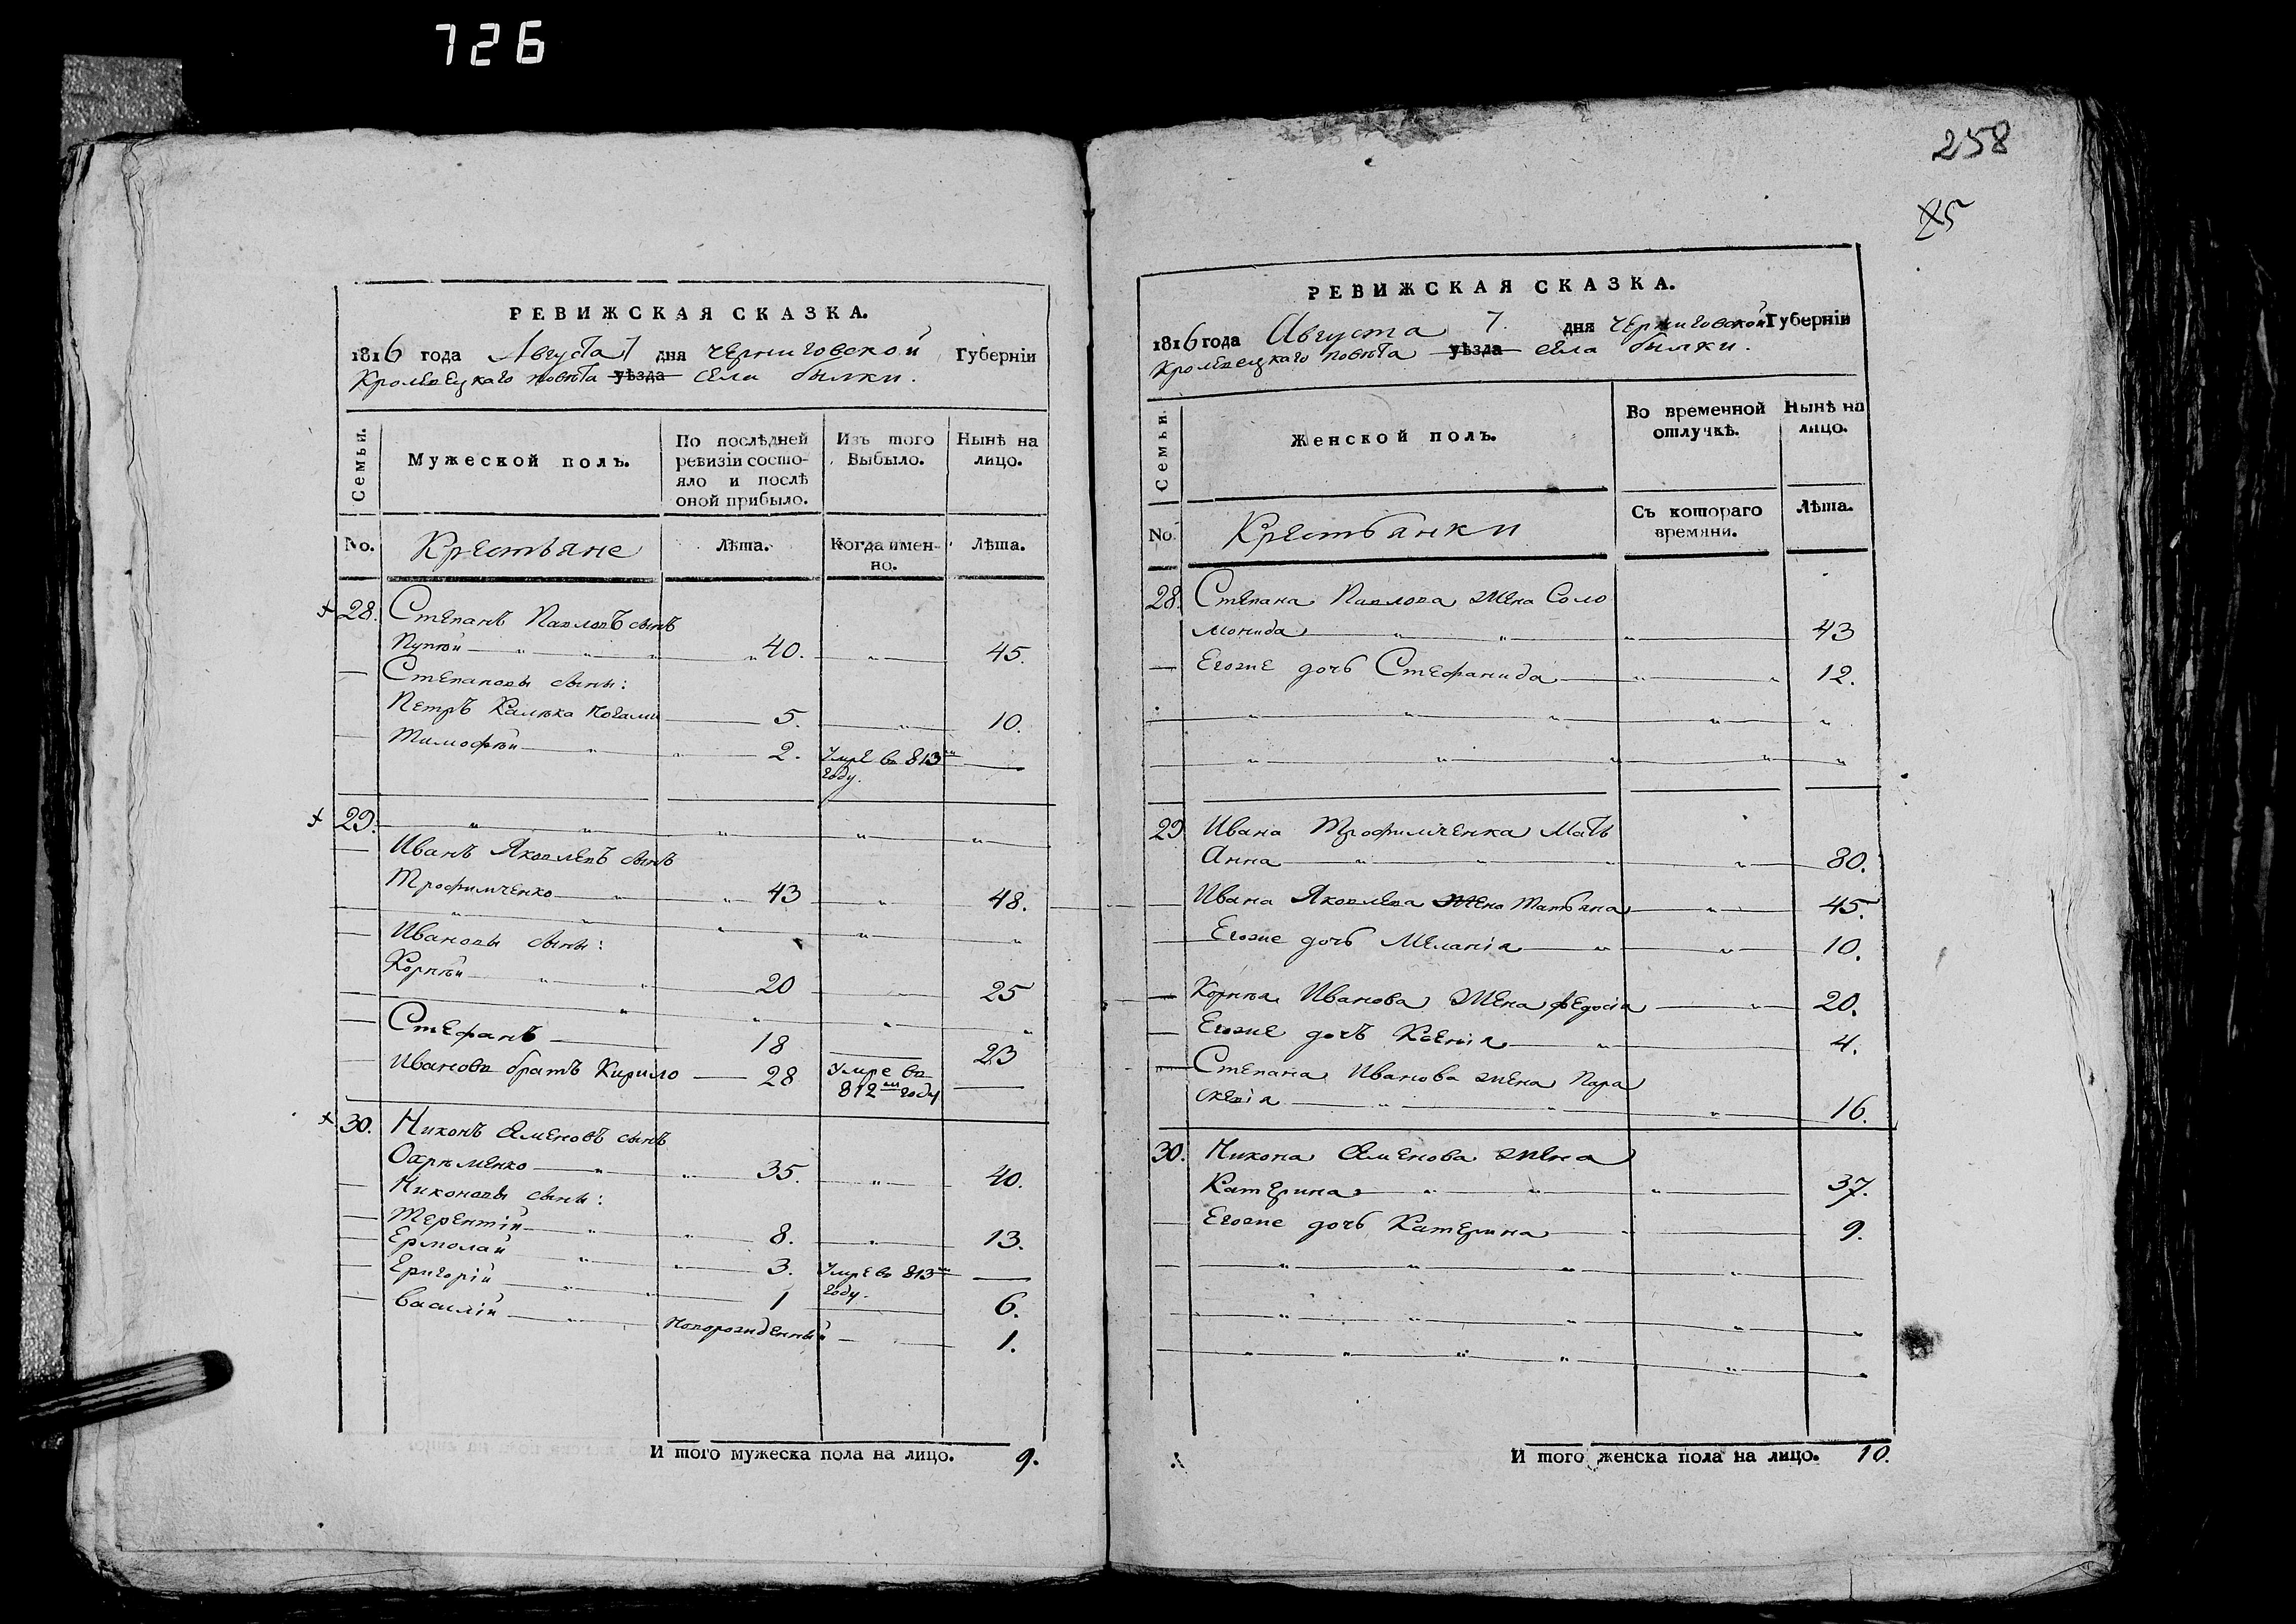 726
РЕВИЖСКАЯ СКАЗКА.
1816 года Августа 7 дня Черниговской Губерніи
Кролевецкаго повѣта уѣзда села былки.
Семьи. Мужеской полъ. По послѣдней ревизіи состояло и послѣ оной прибыло. Изъ того Выбыло. Нынѣ на лицо.
No. Крестьяне Лѣта. Когда именно. Лѣта.
28. Степанъ Павловъ сынъ
40. 45.
Степановы сыны:
Петръ Калѣка ногами 5. 10.
Тимофѣй 2. Умре въ 813м году.
29.
Иванъ Яковлевъ сынъ
Трофимченко 43 48.
Ивановы сыны:
Корнѣй 20 25
Стефанъ 18 23
Ивановъ братъ Кирило 28 Умре въ 812м году
30. Никонъ Семеновъ сынъ
Охрѣменко 35. 40.
Никоновы сыны:
Терентій 8. 13.
Ермолай 3. Умре въ 813м году.
Григорій 1 6.
Василій Новорожденный 1.
И того мужеска пола на лицо. 9.
258
25
РЕВИЖСКАЯ СКАЗКА.
1816 года Августа 7. дня Черниговской Губерніи
Кролевецкаго повѣта уѣзда села былки.
Семьи. Женской полъ. Во временной отлучкѣ. Нынѣ на лицо.
No Крестьянки Съ котораго времяни. Лѣта.
28. Степана Павлова жена Соло
монида 43
Егоже дочь Стефанида 12.
29 Ивана Трофимченка Мать
Анна 80.
Ивана Яковлева жена Татьяна 45.
Егоже дочь Меланія 10.
Корнѣя Иванова жена Федосія 20.
Егоже дочъ Ксенія 4.
Степана Иванова жена Пара
скевія 16.
30. Никона Семенова жена
Катерина 37.
Егоже дочь Катерина 9.
И того женска пола на лицо. 10.